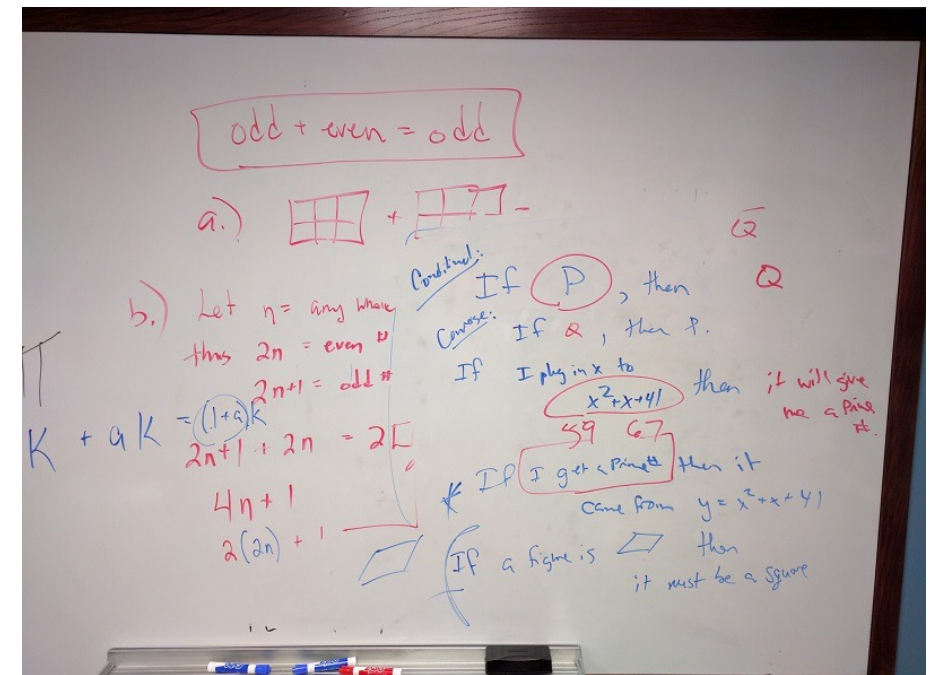 odd + even = odd
a.) + -
b.) Let n = any whole
thus 2n = even #
2n+1 = odd #
K + aK = (1+a)K
2n+1 + 2n = 2
4n + 1
2(2n) + 1
Q
Q
Conditional: If P, then
Converse: If Q, then P.
If I plug in x to
x²+x+41 then it will give
me a Prime
#.
59 67
* If I get a Prime # then it
came from y = x²+x+41
If a figure is then
it must be a square
EXPO
EXPO
EXPO